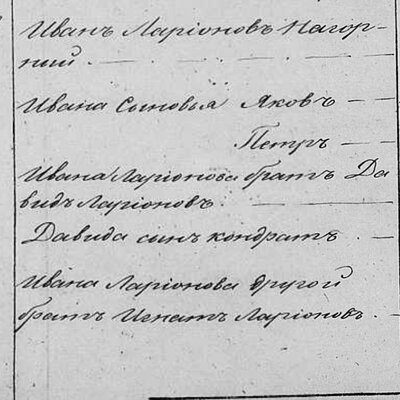 Иванъ Ларіоновъ Нагор-
ний
Ивана Сыновья Яковъ
Петръ
Ивана Ларіонова братъ Да
видъ Ларіоновъ
Давида синъ кондратъ
Ивана Ларіонова другой
братъ Игнатъ Ларіоновъ.